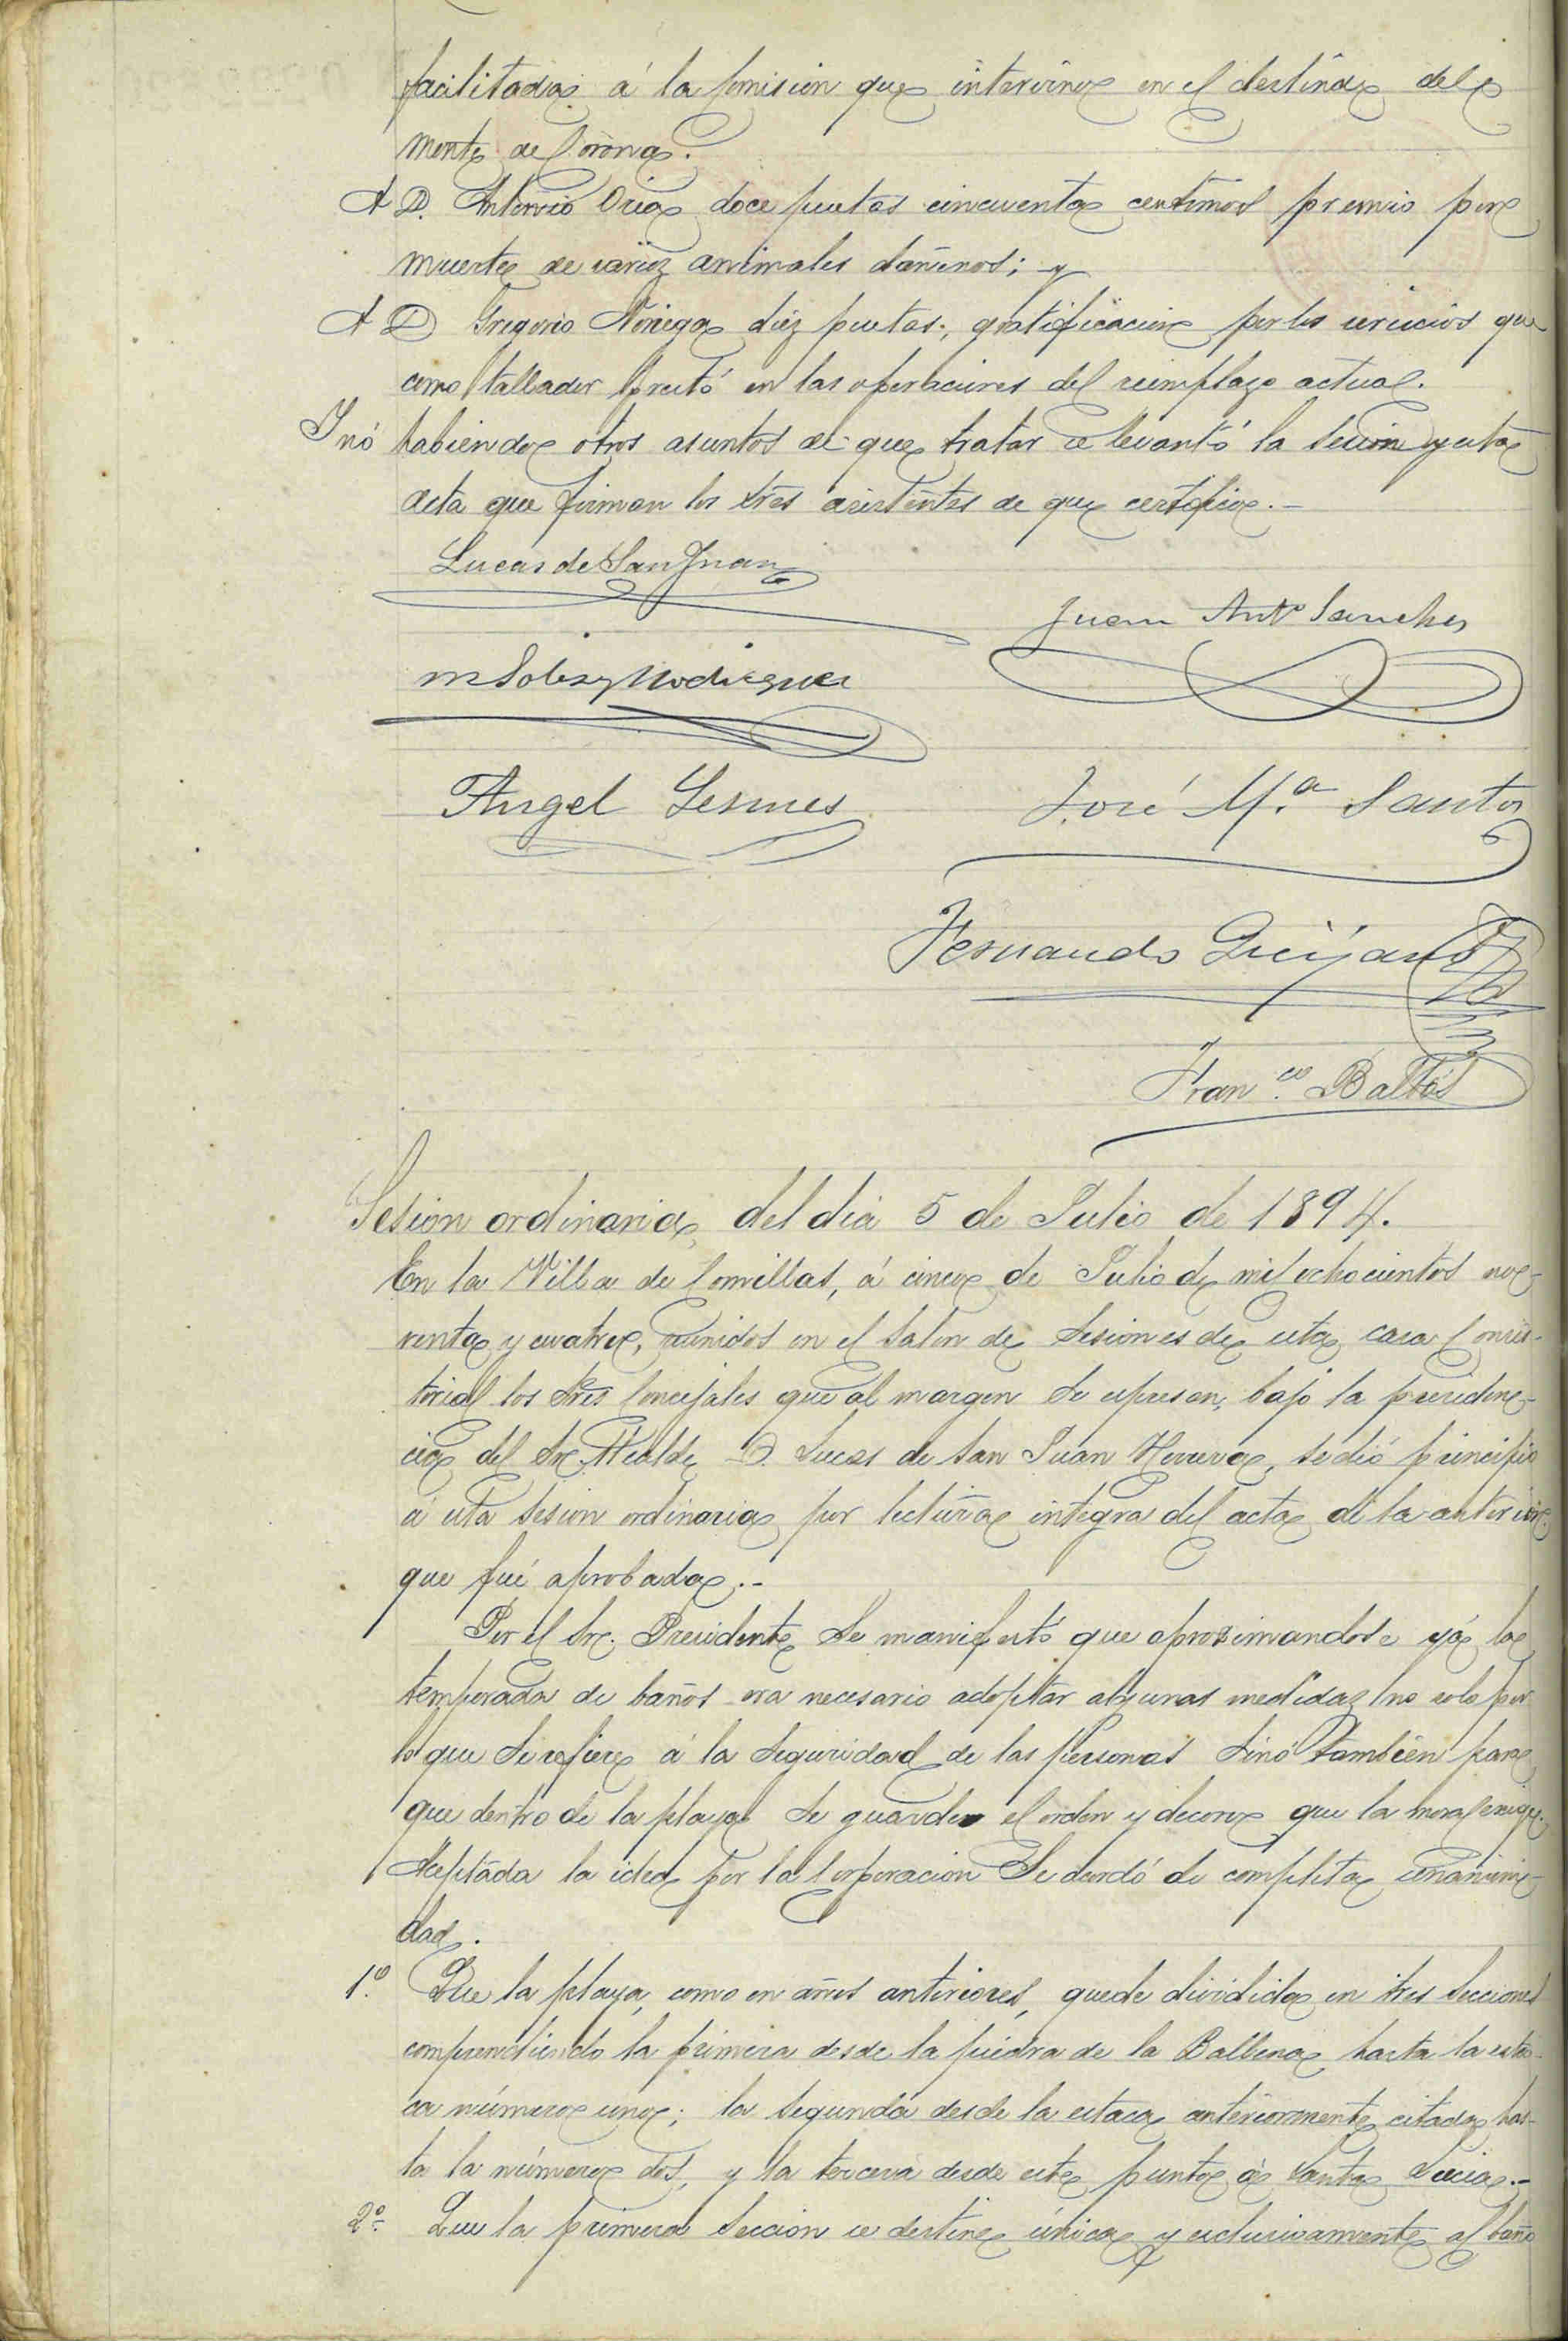 facilitadas á la Comision que intervino en el deslinde del
monte de Corona.
A D. Antonio Oria doce pesetas cincuenta centimos premio por
muerte de varios animales dañinos; y
A D Gregorio Noriega diez pesetas, gratificacion por los servicios que
como tallador prestó en las operaciones del reemplazo actual.
Y nó habiendo otros asuntos de que tratar se levantó la sesion y esta
acta que firman los Sres asistentes de que certifico.-
Lucas de San Juan
Juan Antº Sanchez
M Solis y Rodriguez
Angel Lesmes
José M.ª Santos
Fernando Quijano
Fran.co Baltos
Sesion ordinaria del dia 5 de Julio de 1894.
En la Villa de Comillas, á cinco de Julio de mil ochocientos no-
venta y cuatro, reunidos en el Salon de Sesiones de esta casa Consis-
torial los Sres Concejales que al margen se espresan, bajo la presiden-
cia del Sr. Alcalde D. Lucas de San Juan Herrera, se dió principio
á esta sesion ordinaria por lectura integra del acta de la anterior
que fué aprobada.-
Por el Sr. Presidente se manifestó que aproximandose yá la
temporada de baños era necesario adoptar algunas medidas no solo por
lo que se refiere á la seguridad de las personas sinó tambien para
que dentro de la playa se guarden el orden y decoro que la moral exige.
Aceptada la idea por la Corporacion se acordó de completa unanimi-
dad.
1.º Que la playa, como en años anteriores, quede dividida en tres secciones
comprendiendo la primera desde la piedra de la Ballena hasta la esta-
ca número uno; la segunda desde la estaca anteriormente citada has-
ta la número dos, y la tercera desde este punto á Santa Lucia.-
2.º Que la primera seccion se destine única y esclusivamente al baño